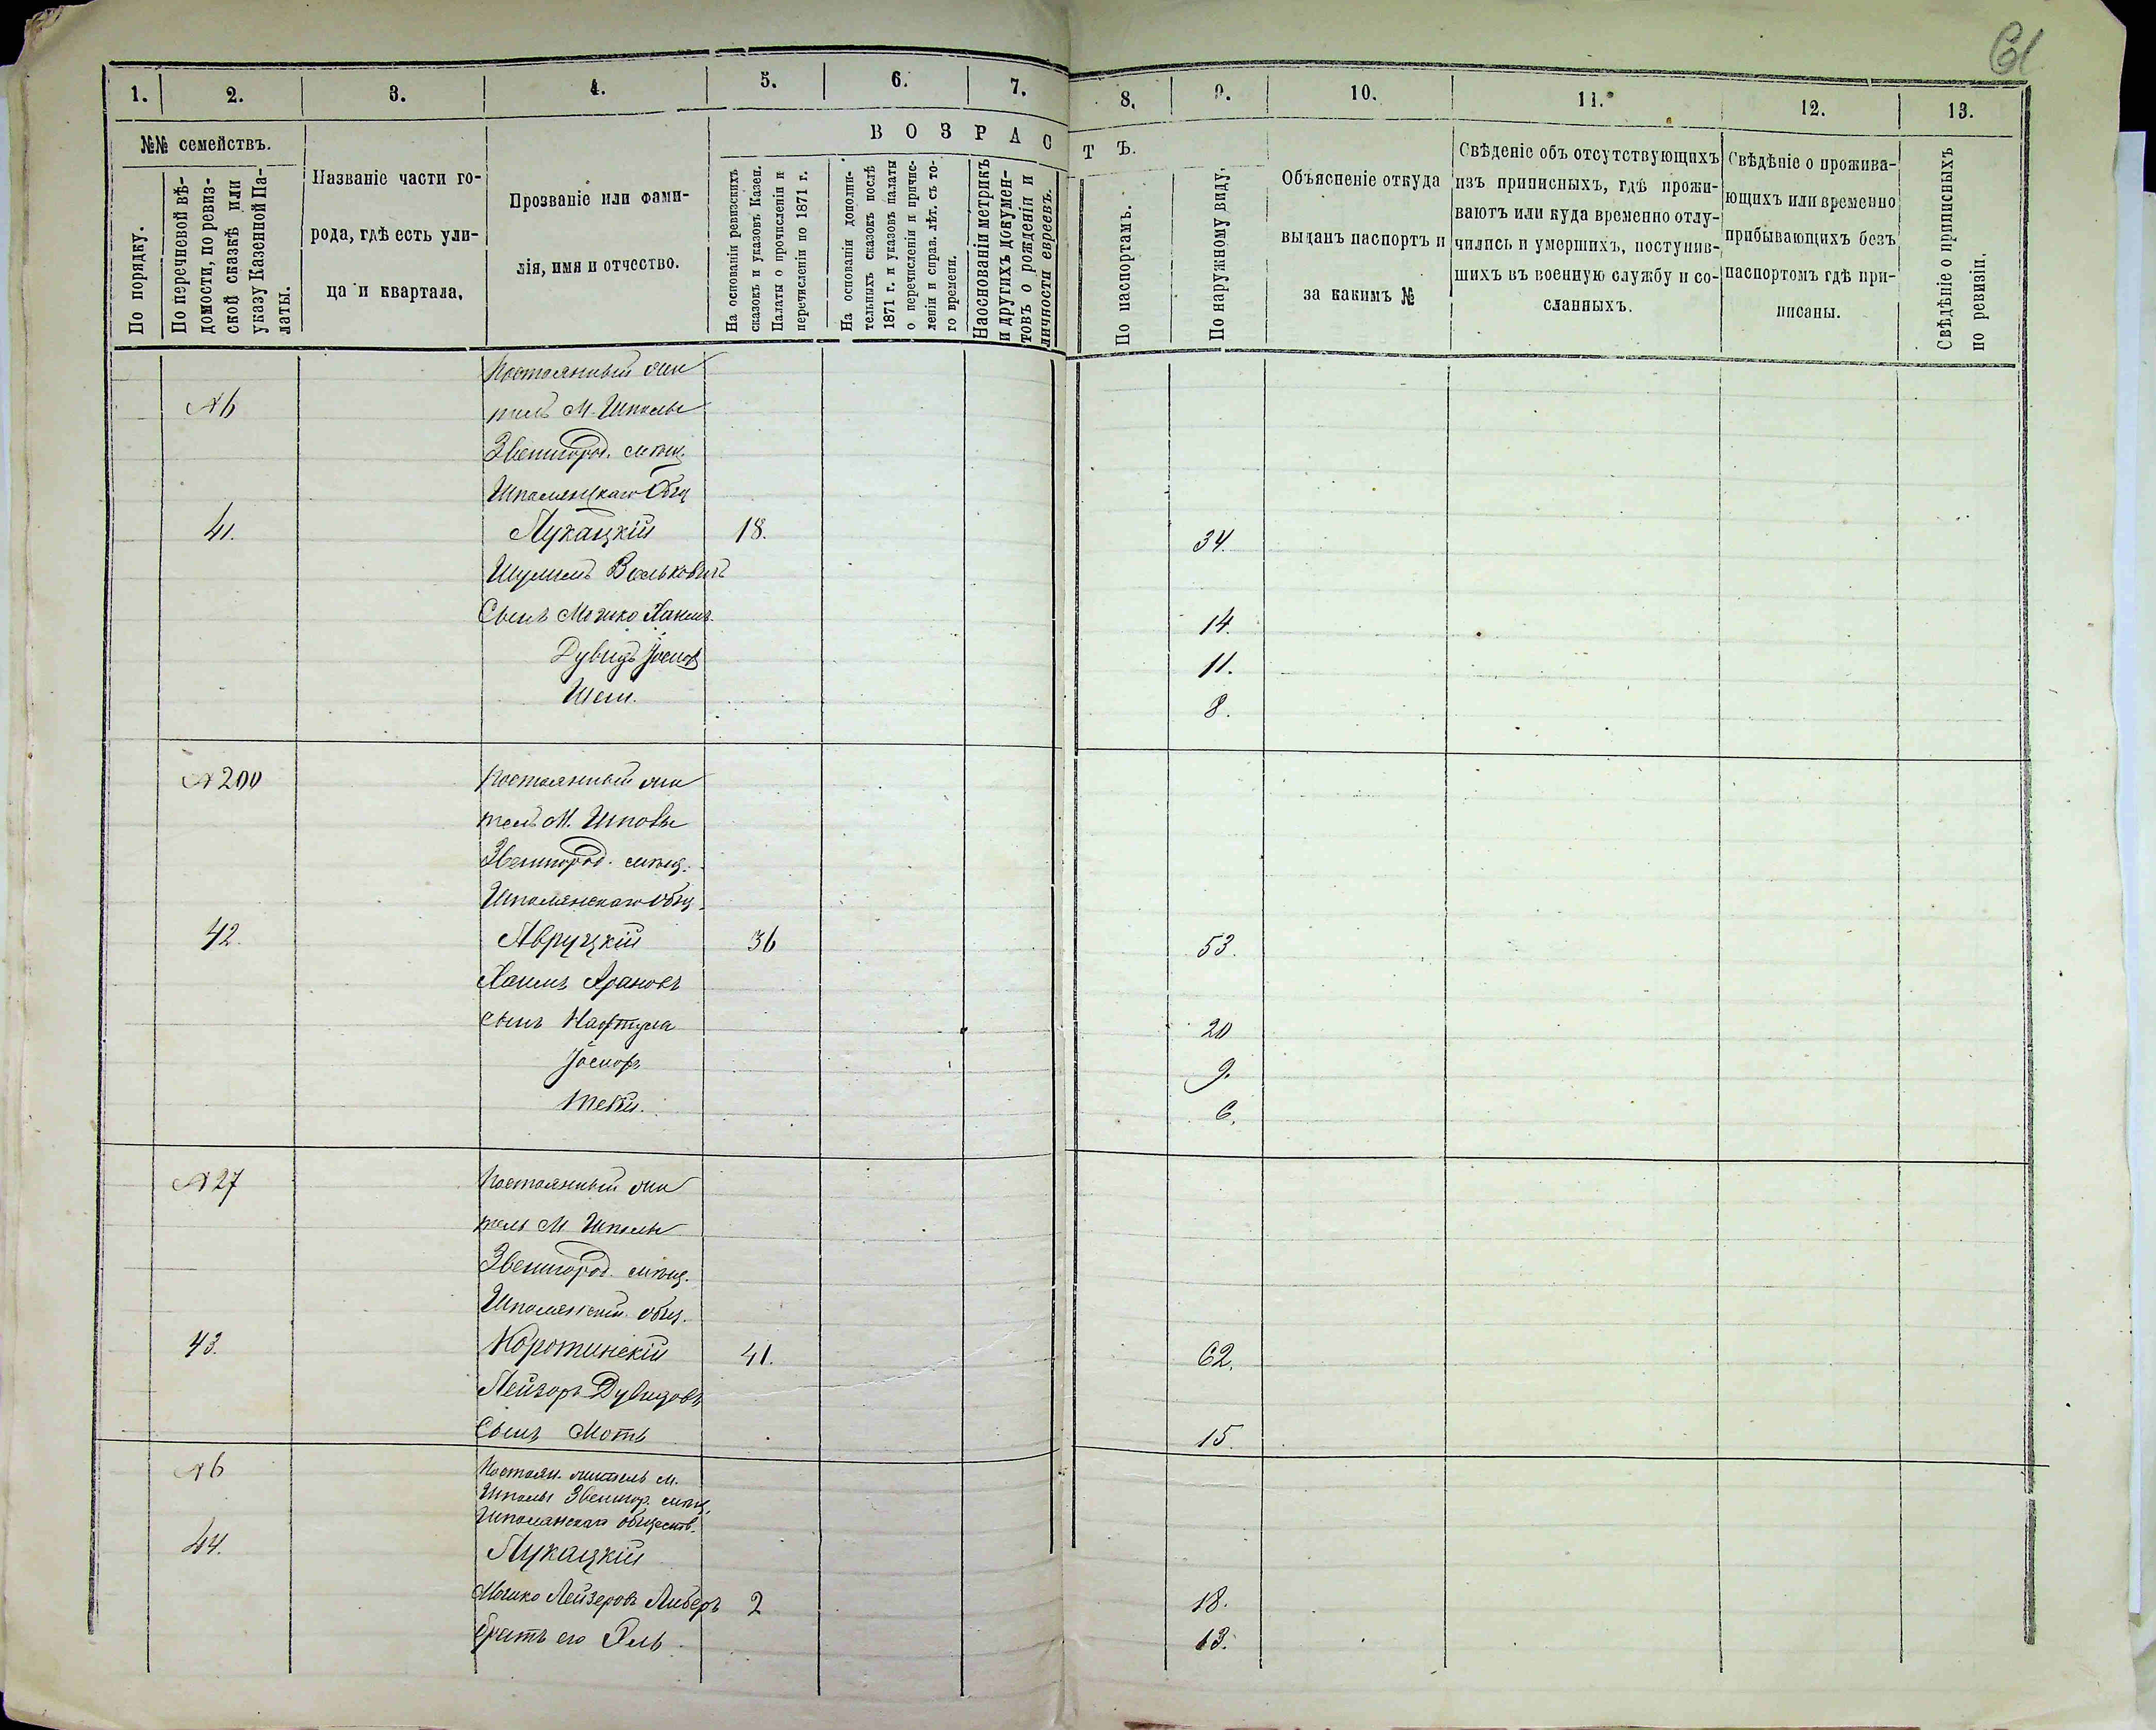 61
1. 2. 3. 4. 5. 6. 7. 8. 9. 10. 11. 12. 13.
№№ семействъ.
По порядку.
По перечневой вѣ-
домости, по ревиз-
ской сказкѣ или
указу Казенной Па-
латы.
Названіе части го-
рода, гдѣ есть ули-
ца и квартала.
Прозваніе или фами-
лія, имя и отчество.
ВОЗРАСТЪ.
На основаніи ревизскихъ
сказокъ и указовъ Казен.
Палаты о прочисленіи и
перечисленіи по 1871 г.
На основаніи дополни-
тельныхъ сказокъ послѣ
1871 г. и указовъ палаты
о перечисленіи и причис-
леніи и справ. лѣт. съ то-
го времени.
На основаніи метрикъ
и другихъ докумен-
товъ о рожденіи и
личности евреевъ.
По паспортамъ.
По наружному виду.
Объясненіе откуда
выданъ паспортъ и
за какимъ №
Свѣденіе объ отсутствующихъ
изъ приписныхъ, гдѣ прожи-
ваютъ или куда временно отлу-
чились и умершихъ, поступив-
шихъ въ военную службу и со-
сланныхъ.
Свѣдѣніе о прожива-
ющихъ или временно
прибывающихъ безъ
паспортомъ гдѣ при-
писаны.
Свѣдѣніе о приписныхъ
по ревизіи.
Постоянный жи
№ 6 тель М. Шполы
Звенигород. мѣщ.
Шполянскаго Общ
41. Лукацкій 18. 34.
Шулимъ Вольковичъ
Сынъ Мошко Хаимъ 14.
Дувидъ Іосифъ 11.
Шеи. 8.
№ 200 Постоянный жи
тель М. Шполы
Звенигород. мѣщ.
Шполянскаго Общ.
42. Авруцкій 36 53.
Хаимъ Арановъ
сынъ Нафтула 20
Іосифъ 9.
6.
№ 27 Постоянный жи
тель М Шполы
Звенигород. мѣщ.
Шполянскій общ.
43. Коротинскій 41. 62.
Лейзоръ Дувидовъ
Сынъ Моть 15.
№ 6 Постоян. житель м.
Шполы Звенигор. мѣщ.
Шполянскаго обществ.
44. Лукацкій
Мошко Лейзеровъ Либеръ 2 18.
братъ его Эль 13.